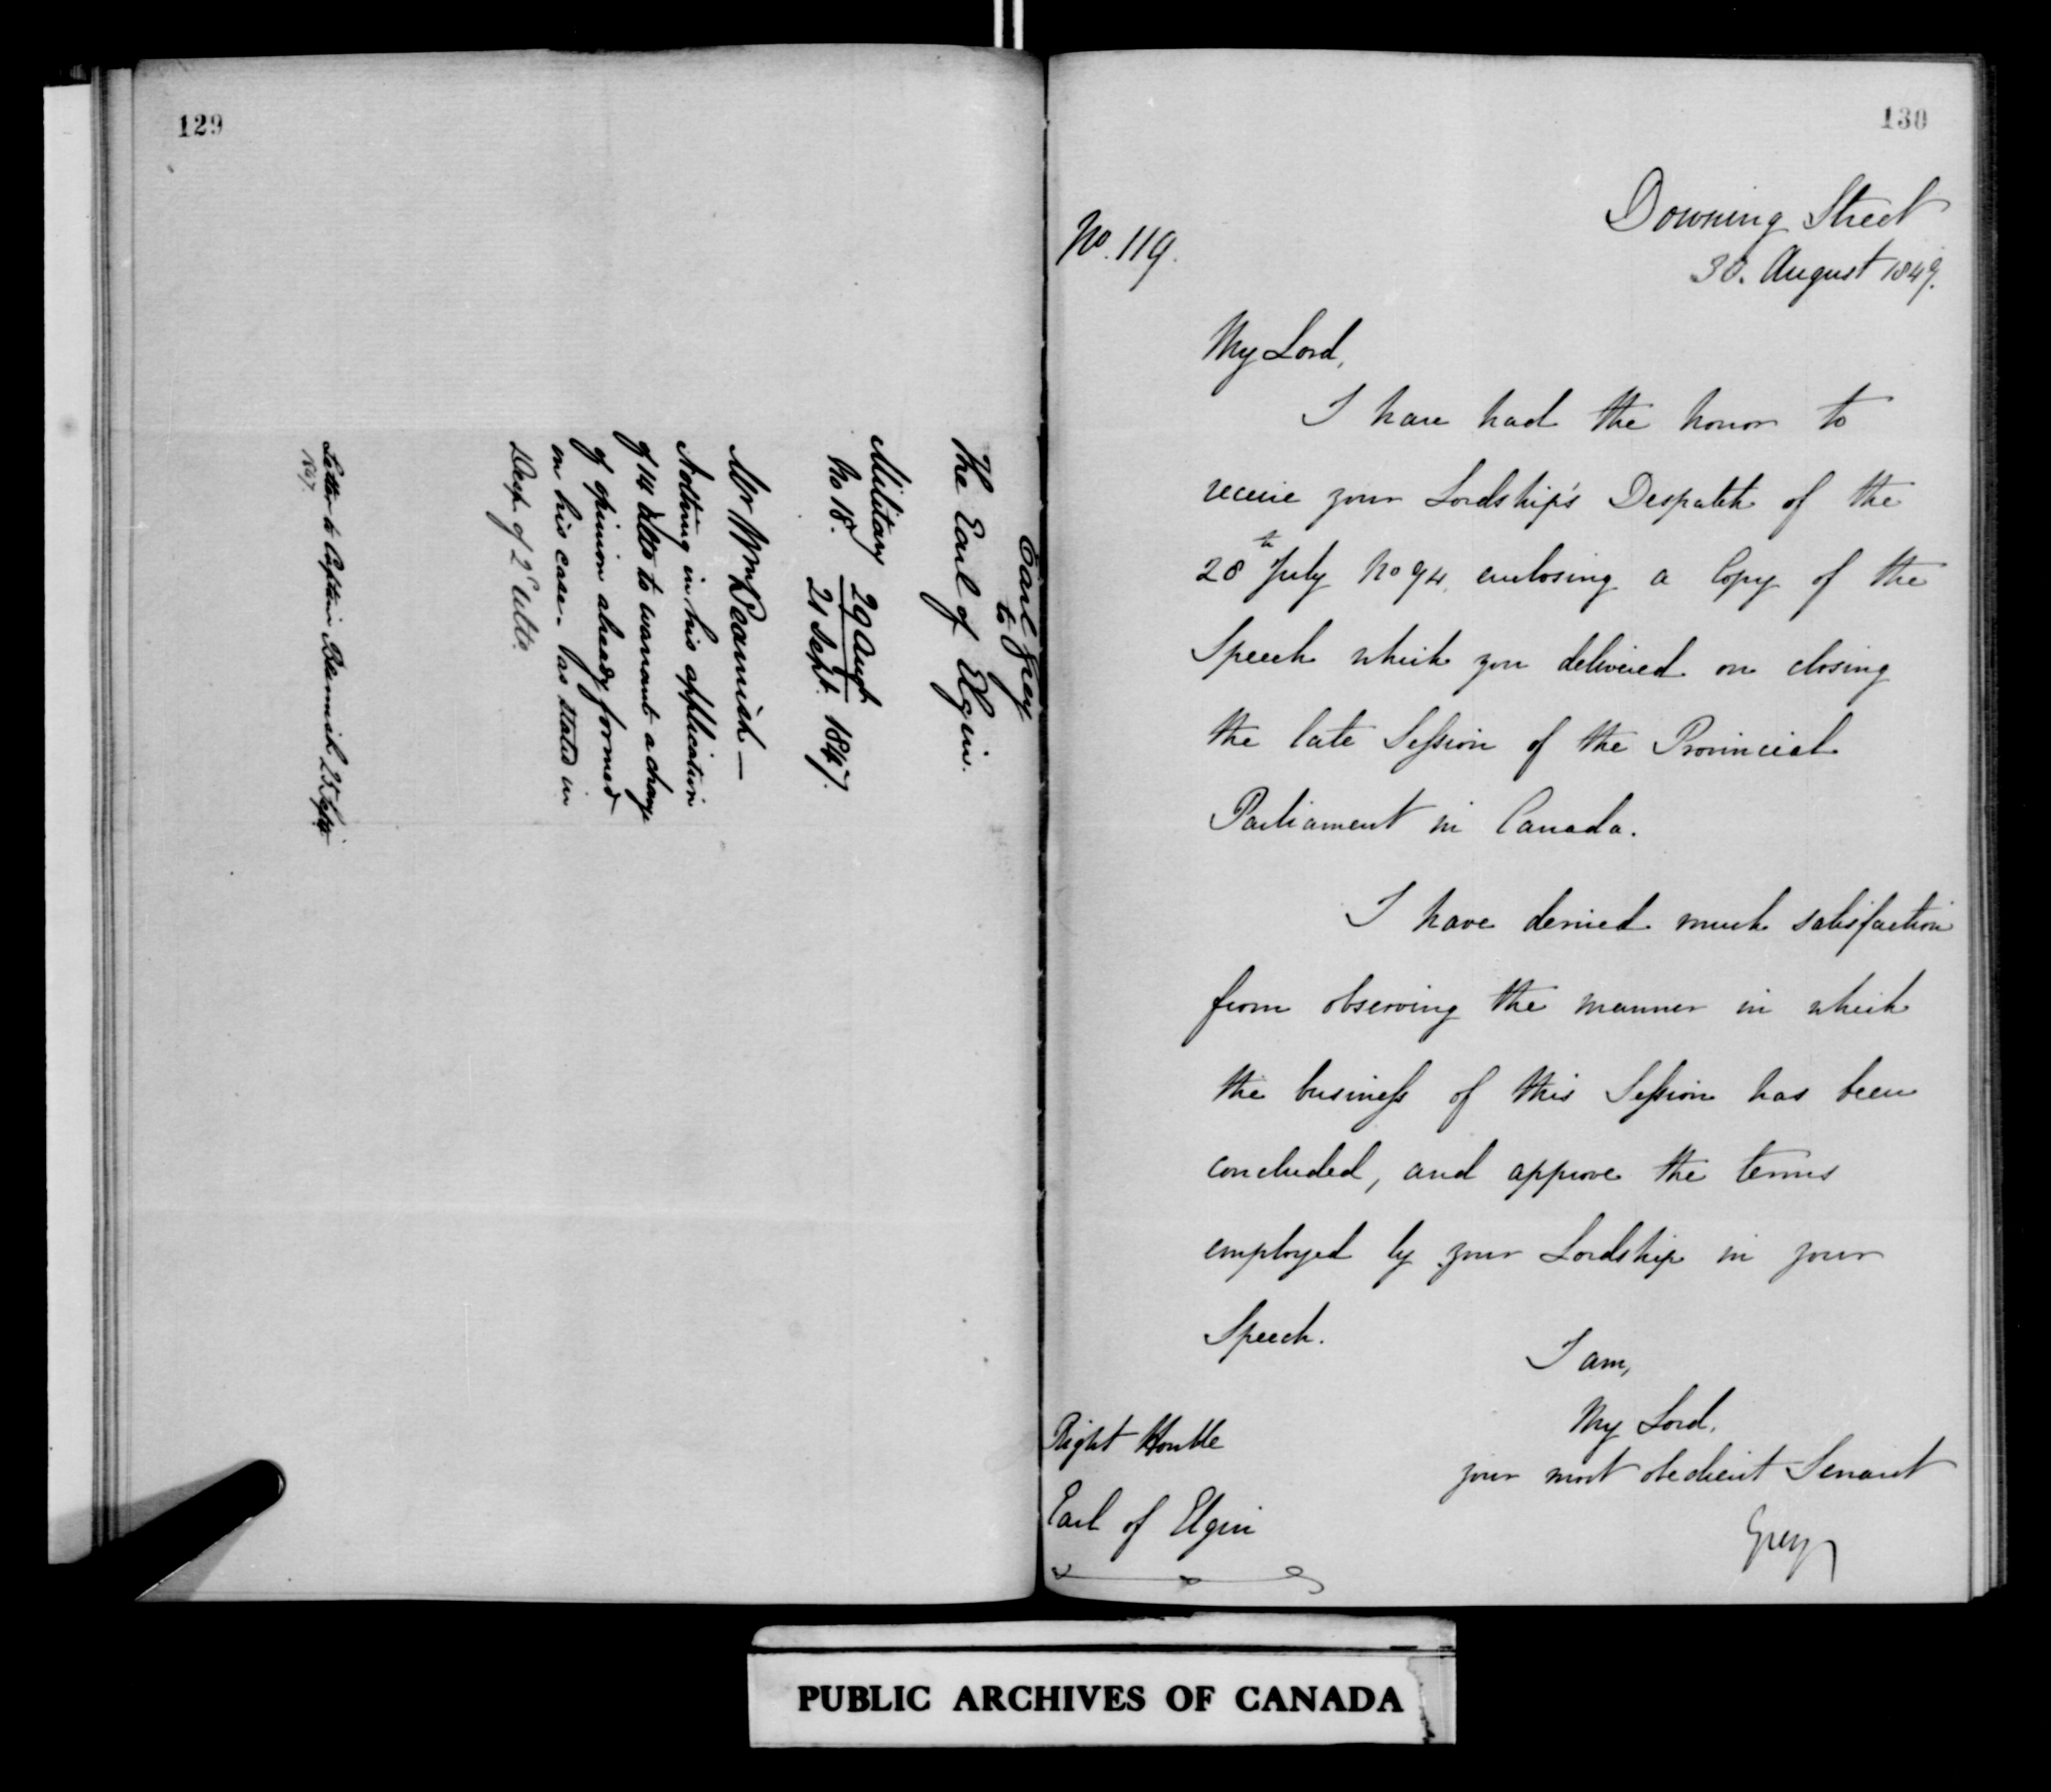 129
Earl Grey
to
The Earl of Elgin.
Military
No 18.
29 Augt
21 Sept. 1847.
Mr Wm Beamish —
Nothing in his application
of 14 to warrant a change
of opinion already formed
on his case. as stated in
Desp. of 2d Ulto.
Letter to Captain Beamish 25 Septr
1847.
130
Downing Street
30. August 1847.
No. 119.
My Lord,
I have had the honor to
receive your Lordship's Despatch of the
28th July No 74, enclosing a Copy of the
Speech which you delivered on closing
the late Session of the Provincial
Parliament in Canada.
I have derived much satisfaction
from observing the manner in which
the business of this Session has been
concluded, and approve the terms
employed by your Lordship in your
Speech.
I am,
My Lord,
your most obedient Servant
Grey
Right Honble
Earl of Elgin
PUBLIC ARCHIVES OF CANADA